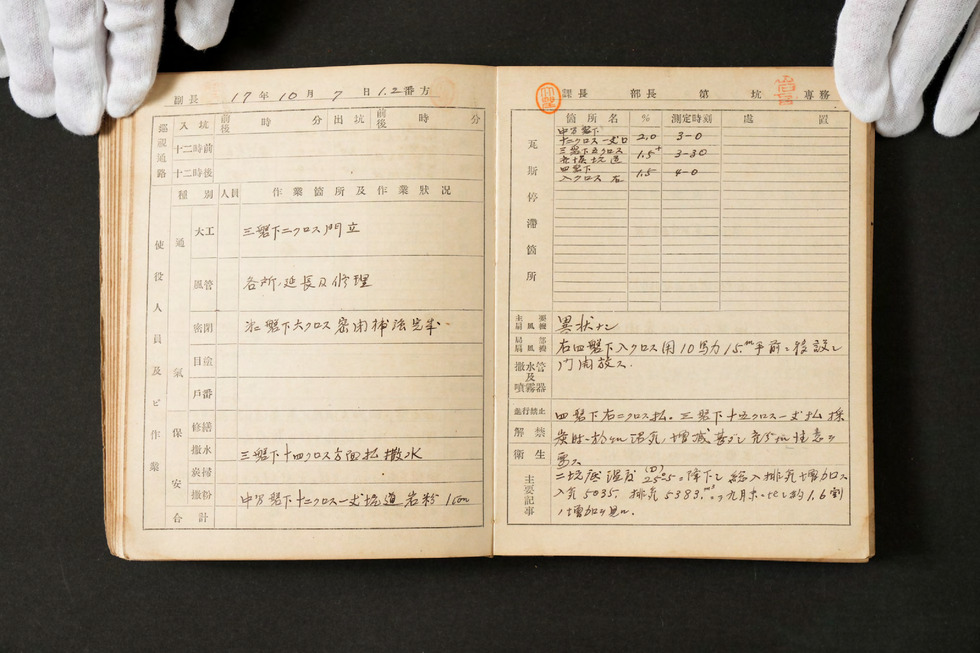 副長 17年10月7日1.2番方
巡視通路 入坑 前後 時 分 出坑 前後 時 分
十二時前
十二時後
使役人員及ビ作業
種別 人員 作業箇所及作業狀況
通氣
大工 三盤下二クロス門立
風管 各所ノ延長及修理
密閉 盤下六クロス密閉補强完本
目塗
戶番
保安
修繕
撒水 三盤下十四クロス方面払撒水
炭掃
撒粉 中万盤下十二クロス一丈坑道岩粉
合計
課長 部長 第 坑 専務
瓦斯停滯箇所
箇所名 % 測定時刻 處置
中万盤下
十二クロス一丈 2.0 3-0
三盤下五クロス
坑道 1.5+ 3-30
四盤下
入クロス右 1.5 4-0
主要扇風機 異状ナシ
局部扇風機 右四盤下入クロス用10馬力15m手前ニ移設シ
撒水管及噴霧器 門開放ス.
進行禁止 四盤下右二クロス払。三盤下十五クロス一丈払採
解禁 炭時ニ於ケル瓦斯増減甚ダシ 注意ヲ
衛生 要ス
主要記事 二坑底温度25°5ニ降下シ総入排気増加ス
入気5035. 排気5383.m³ 九月末ニ比シ約1.6割
ノ増加ヲ見ル.